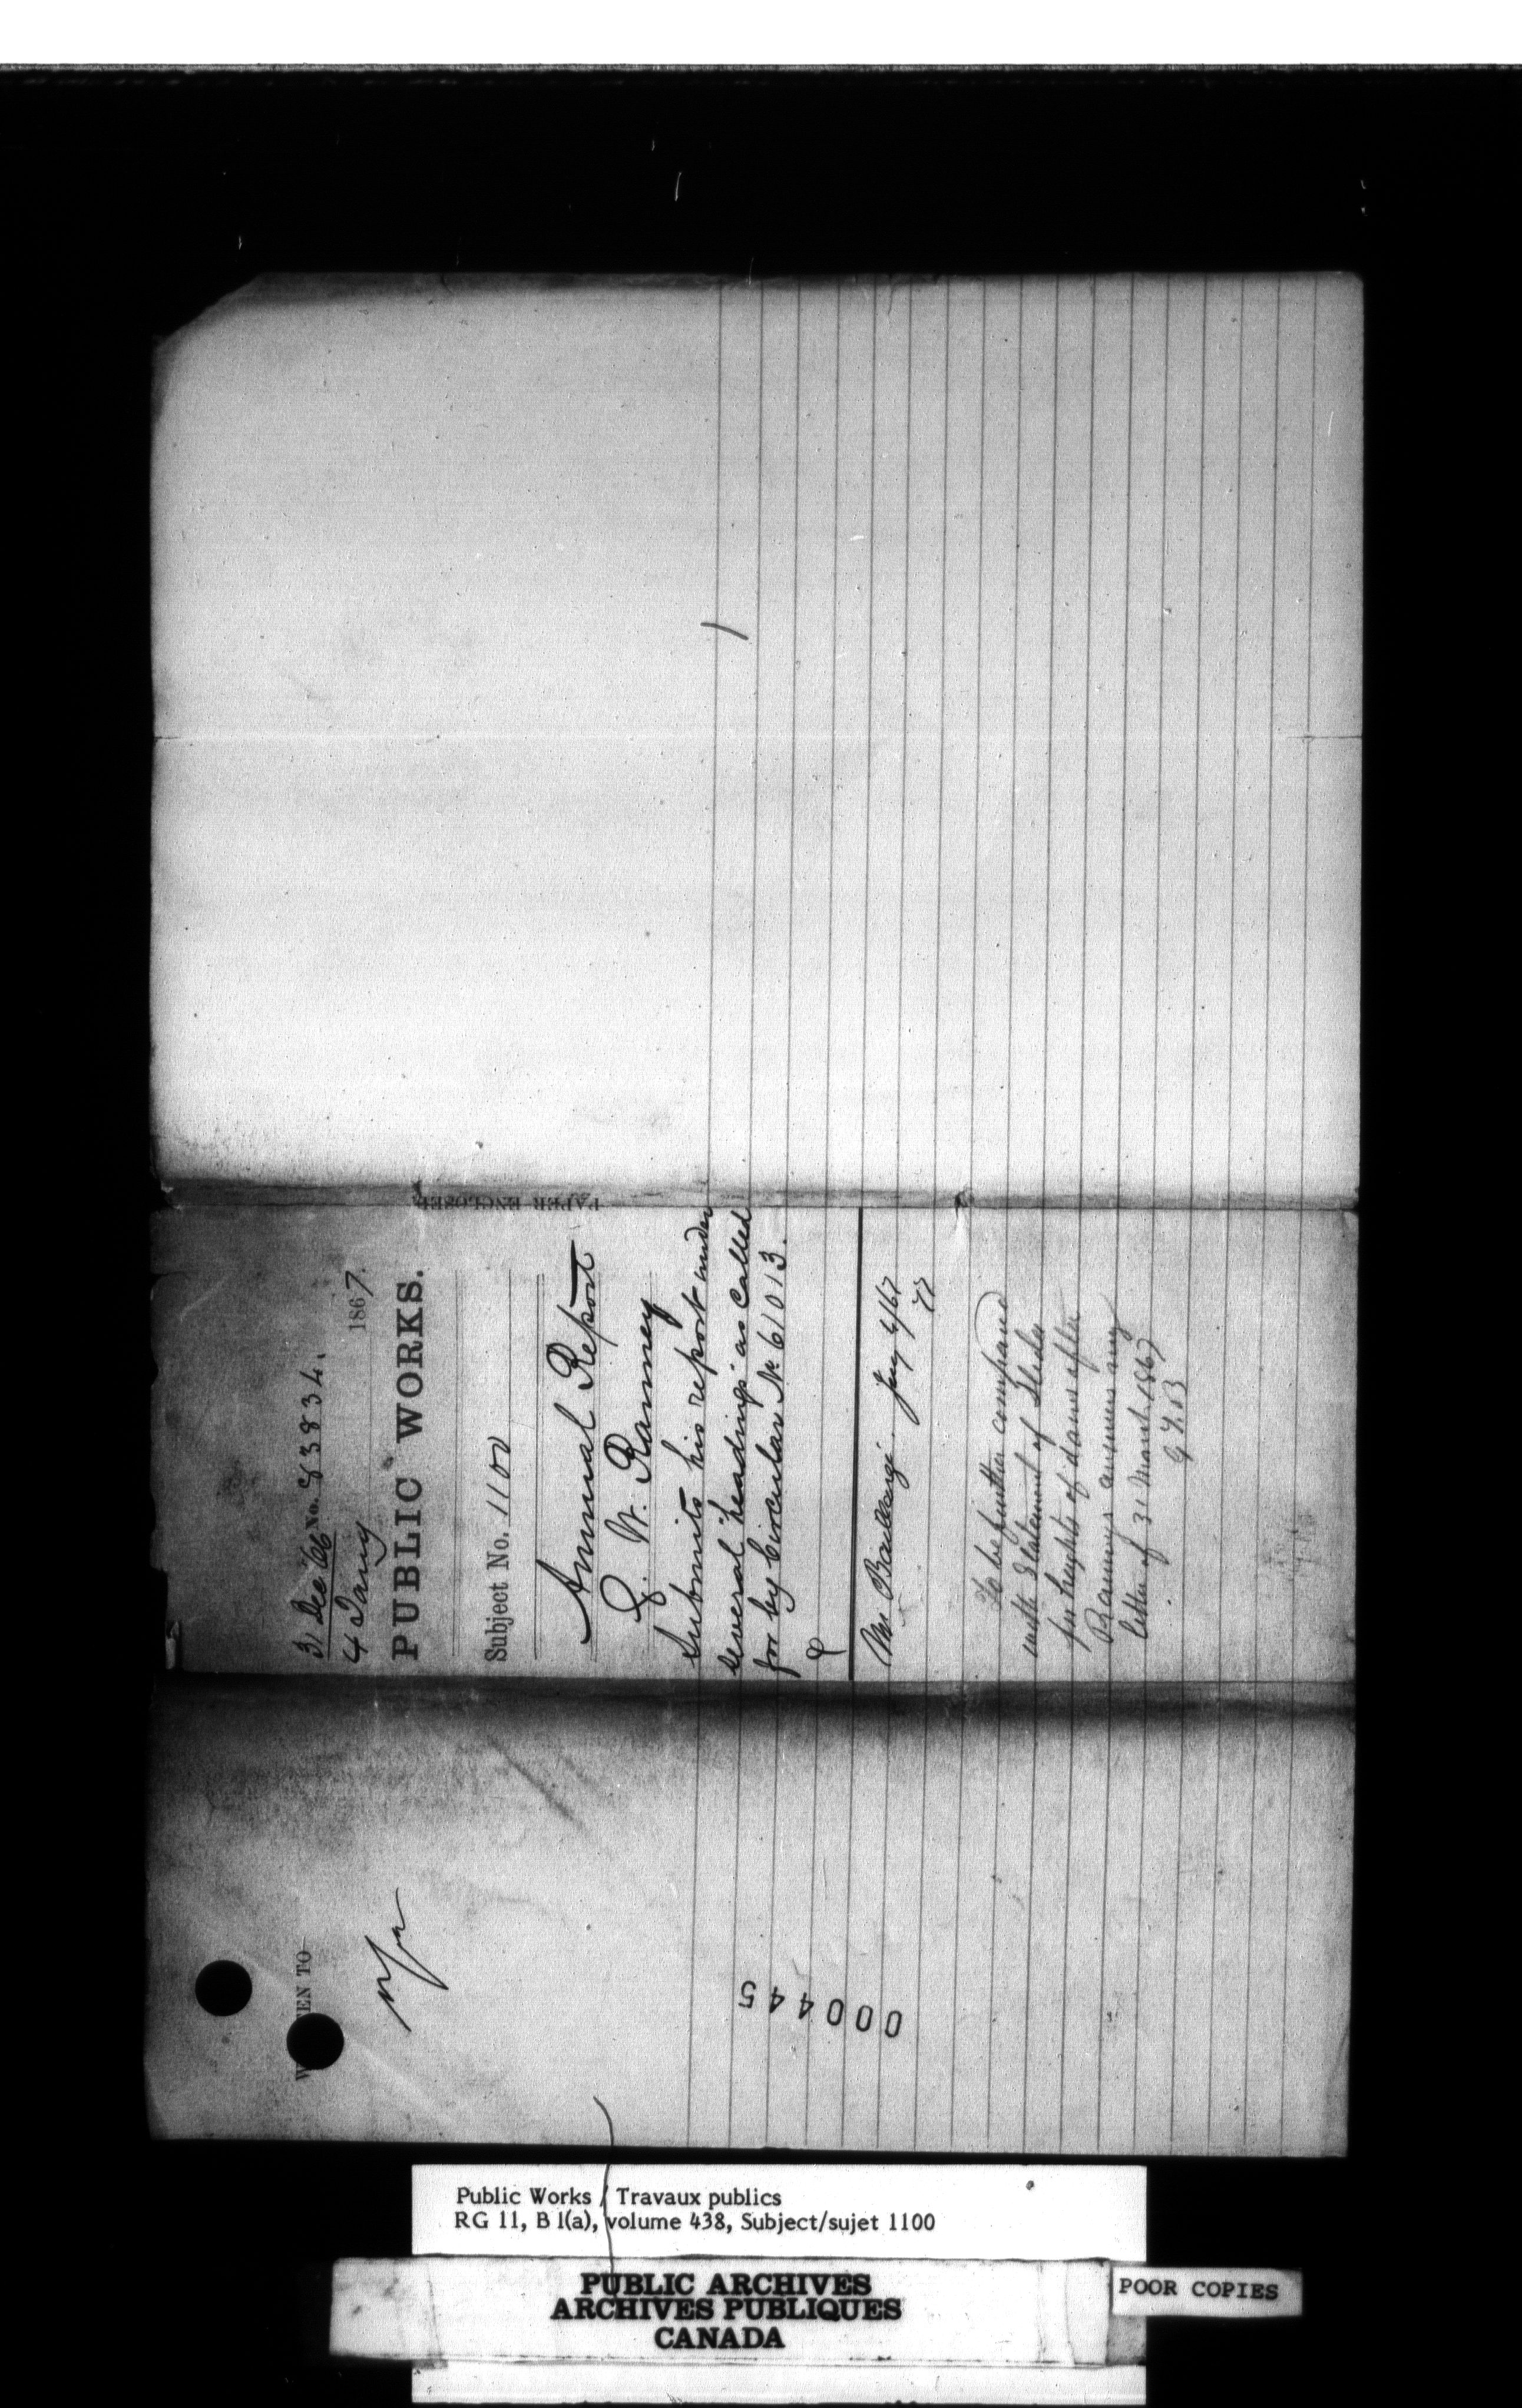 31 Dec 66 No. 83834.
4 Jany 1867.
PUBLIC WORKS.
Subject No. 1100
Annual Report
J. W. Ranney
Submits his report under
several "headings" as called
for by Circular No 61013.
Mr Baillargé Jany 4/67
To be further compared
with Statement of Slides
for heights of dams after
Ranneys answers my
letter of 31 March 1867
G F B
PAPER ENCLOSED
EN TO
000445
Public Works / Travaux publics
RG 11, B 1(a), volume 438, Subject/sujet 1100
PUBLIC ARCHIVES
ARCHIVES PUBLIQUES
CANADA
POOR COPIES